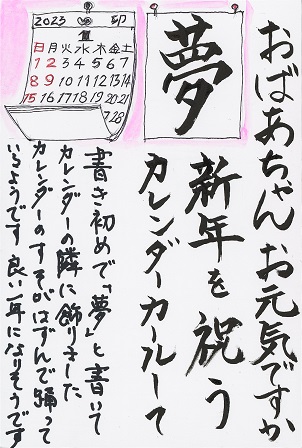 おばあちゃんお元気ですか
夢
新年を祝う
カレンダーカールして
2023 卯
日 月 火 水 木 金 土
1 2 3 4 5 6 7
8 9 10 11 12 13 14
15 16 17 18 19 20 21
28
書き初めで「夢」と書いて
カレンダーの隣に飾りました
カレンダーのすそがはずんで踊って
いるようです 良い一年になりそうです